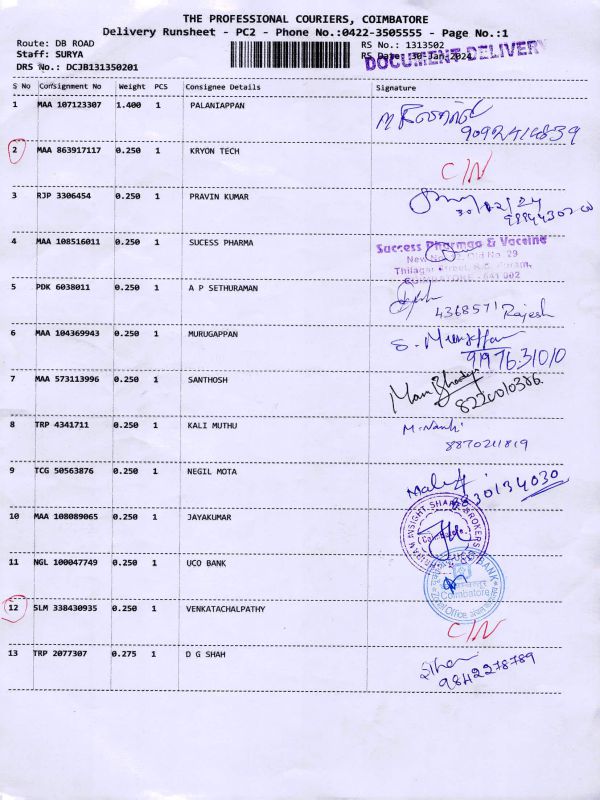 THE PROFESSIONAL COURIERS, COIMBATORE
Delivery Runsheet - PC2 - Phone No.:0422-3505555 - Page No.:1
Route: DB ROAD RS No.: 1313502
Staff: SURYA RS Date: 30-Jan-2024
DOCUMENT DELIVERY
DRS No.: DCJB131350201
S No Consignment No Weight PCS Consignee Details Signature
1 MAA 107123307 1.400 1 PALANIAPPAN
2 MAA 863917117 0.250 1 KRYON TECH C/N
3 RJP 3306454 0.250 1 PRAVIN KUMAR
4 MAA 108516011 0.250 1 SUCESS PHARMA
Success Pharma & Vaccine
Old No. 29
Thilagar Street,
COIMBATORE - 641 002
5 PDK 6038011 0.250 1 A P SETHURAMAN
4368571 Rajesh
6 MAA 104369943 0.250 1 MURUGAPPAN
7 MAA 573113996 0.250 1 SANTHOSH
8220010386
8 TRP 4341711 0.250 1 KALI MUTHU
8870211819
9 TCG 50563876 0.250 1 NEGIL MOTA
8830134030
10 MAA 108089065 0.250 1 JAYAKUMAR
INSIGHT SHARE BROKERS
11 NGL 100047749 0.250 1 UCO BANK
BANK
Coimbatore
Office
12 SLM 338430935 0.250 1 VENKATACHALPATHY C/N
13 TRP 2077307 0.275 1 D G SHAH
9842278789